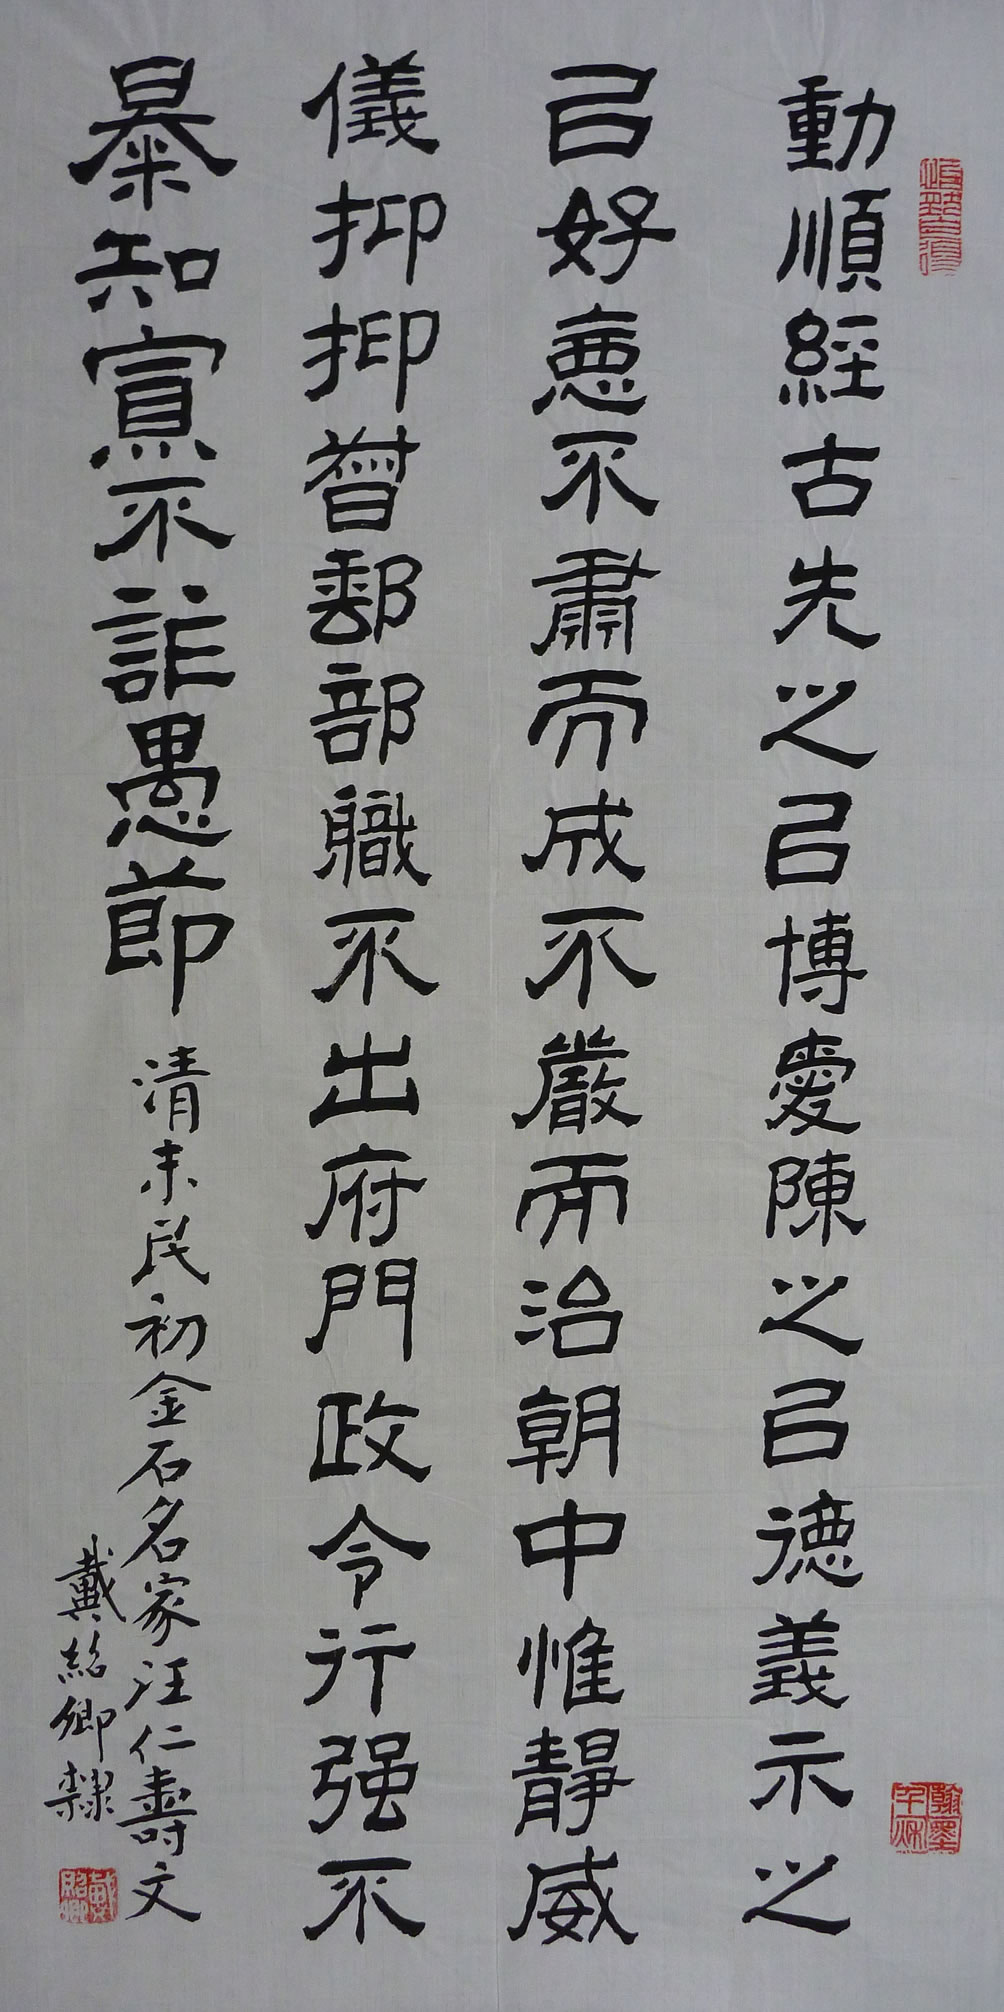 動順經古先之㠯博愛陳之㠯德義示之
㠯好惡不肅而成不嚴而治朝中惟靜威
儀抑抑督郵部職不出府門政令行强不
暴知寡不詐愚節
清末民初金石名家汪仁壽文
戴紹卿隸